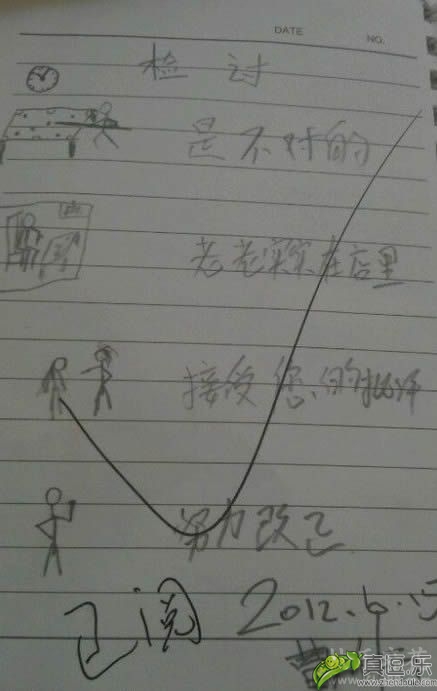 DATE NO.
检 讨
是不对的
老老实实在店里
接受您的批评
努力改正
已阅 2012.6.15
真逗乐
www.zhendoule.com